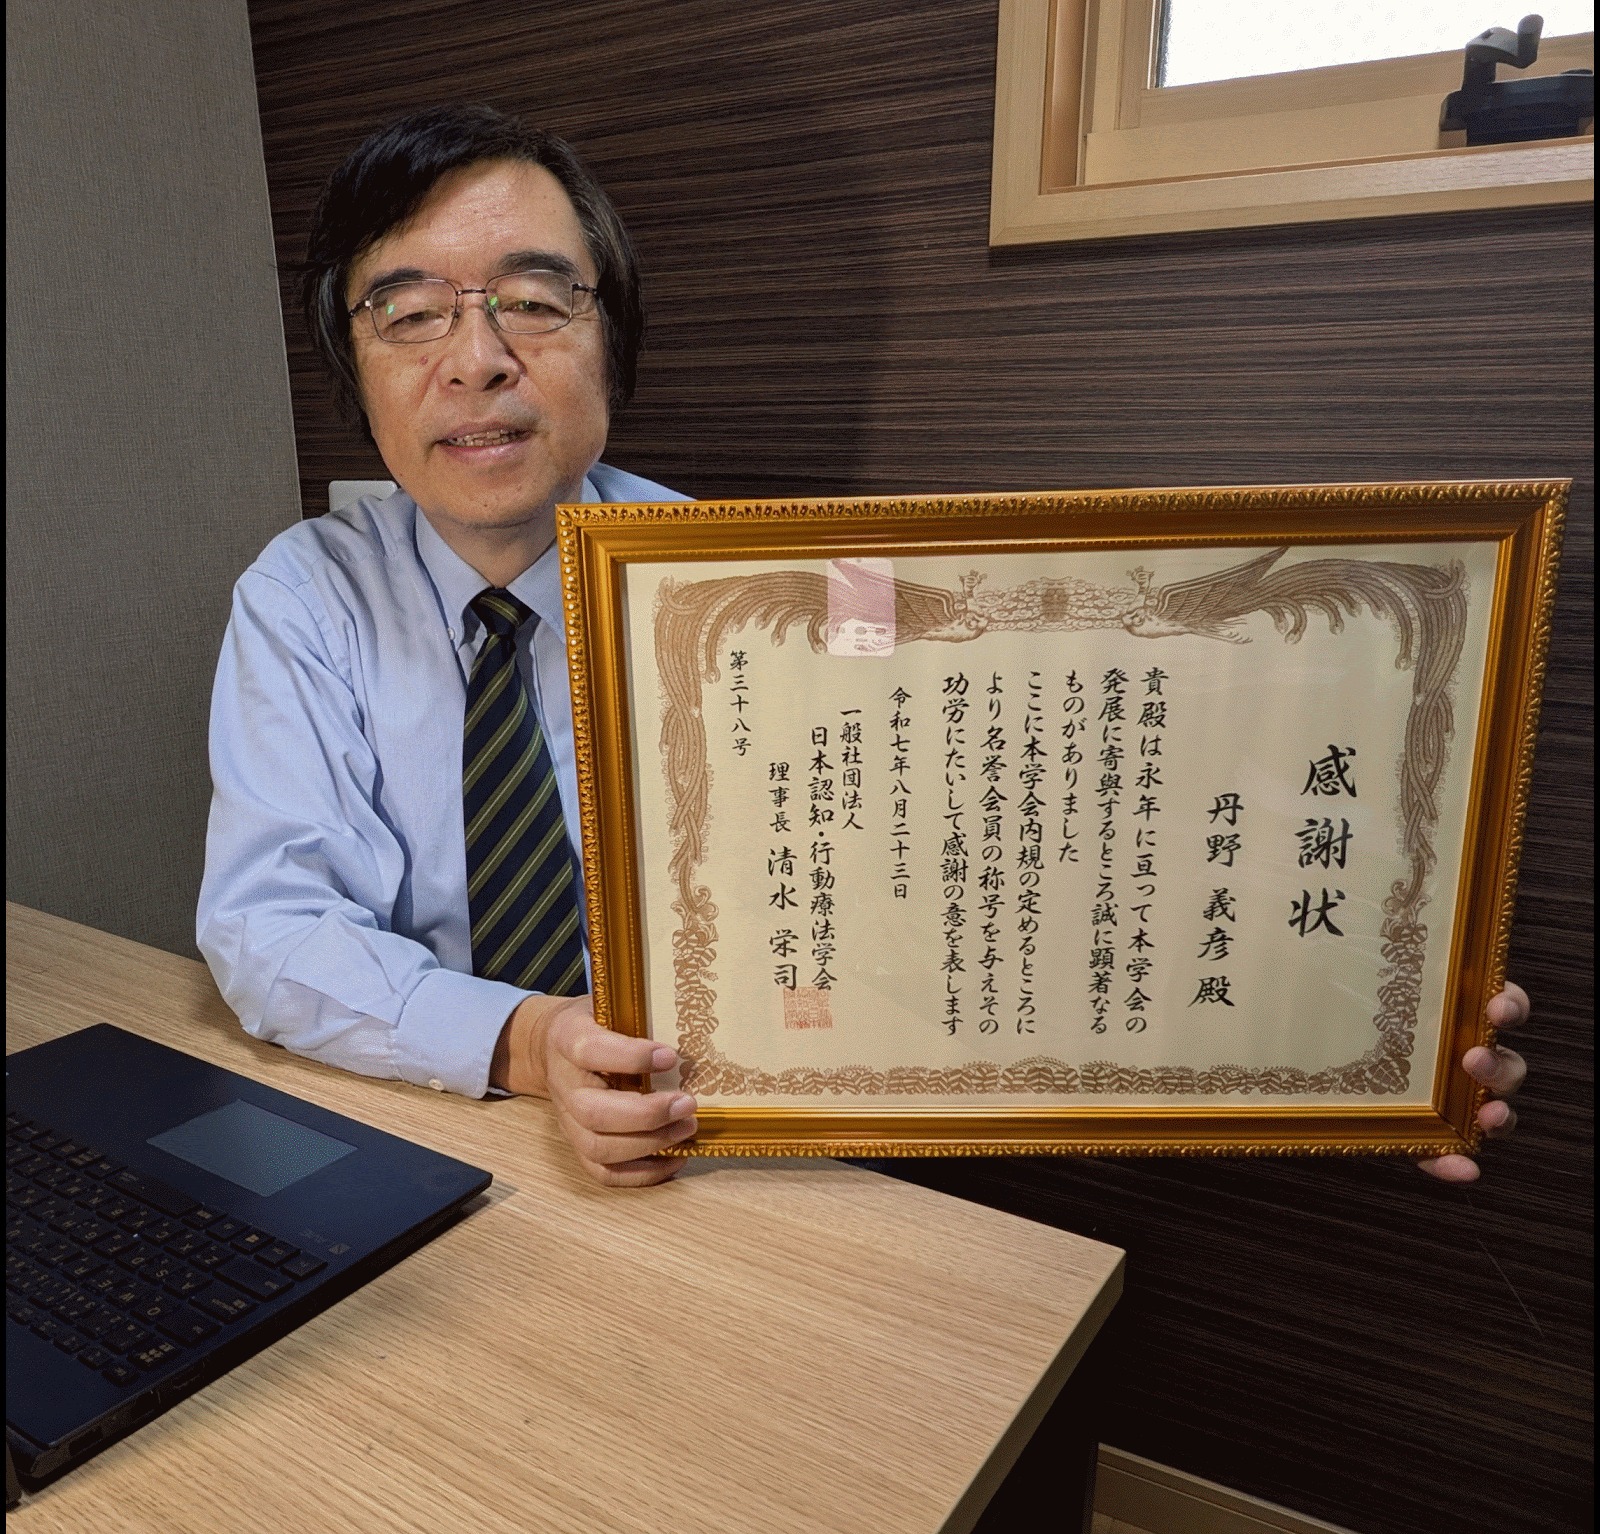 感謝状
丹野 義彦 殿
貴殿は永年に亘って本学会の
発展に寄與するところ誠に顕著なる
ものがありました
ここに本学会内規の定めるところに
より名誉会員の称号を与えその
功労にたいして感謝の意を表します
令和七年八月二十三日
一般社団法人
日本認知・行動療法学会
理事長 清水 栄司
第三十八号